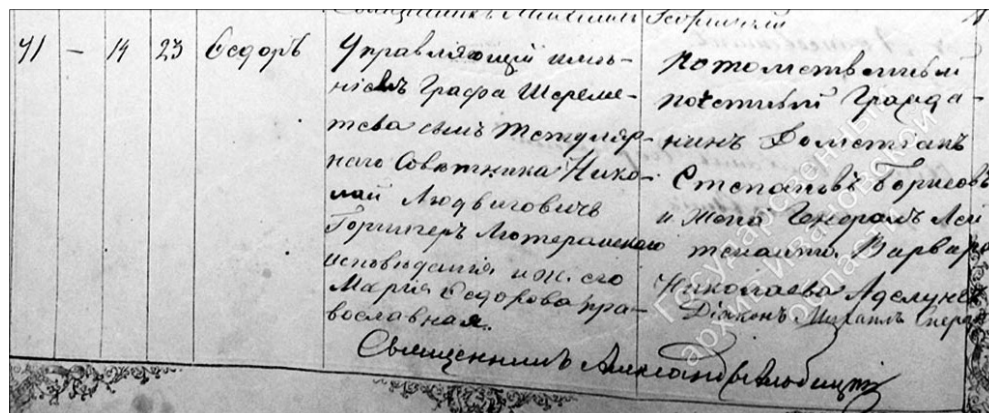 Священникъ Михаилъ Георгіевскій
41 — 14 23 Ѳедоръ
Управляющій имѣ-
ніемъ Графа Шереме-
тева сынъ Титуляр-
наго Совѣтника Нико-
лай Людвиговичъ
Горнигеръ Лютеранскаго
исповѣданія и ж. его
Марія Ѳедорова пра-
вославная.
Потомственный
почетный Гражда-
нинъ Дометіанъ
Степановъ Борисовъ
и жена Генералъ Лей
тенанта Варвара
Николаева
Діаконъ Михаилъ
Священникъ Александръ
Государственный
архив Ивановской
области